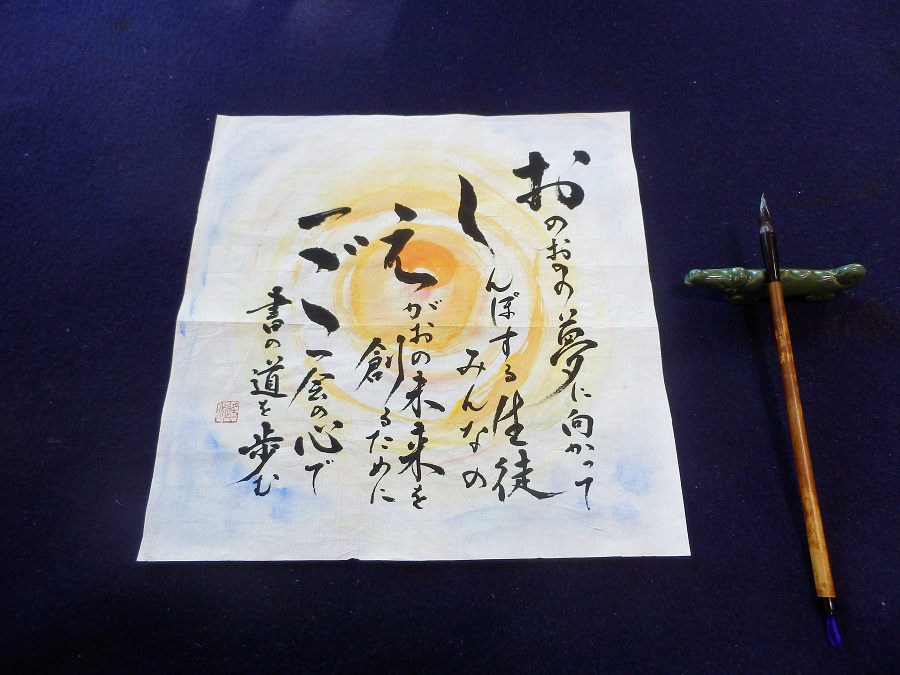 おのおのの夢に向かって
しんぽする生徒
みんなの
えがおの未来を
創るために
一ご一会の心で
書の道を歩む